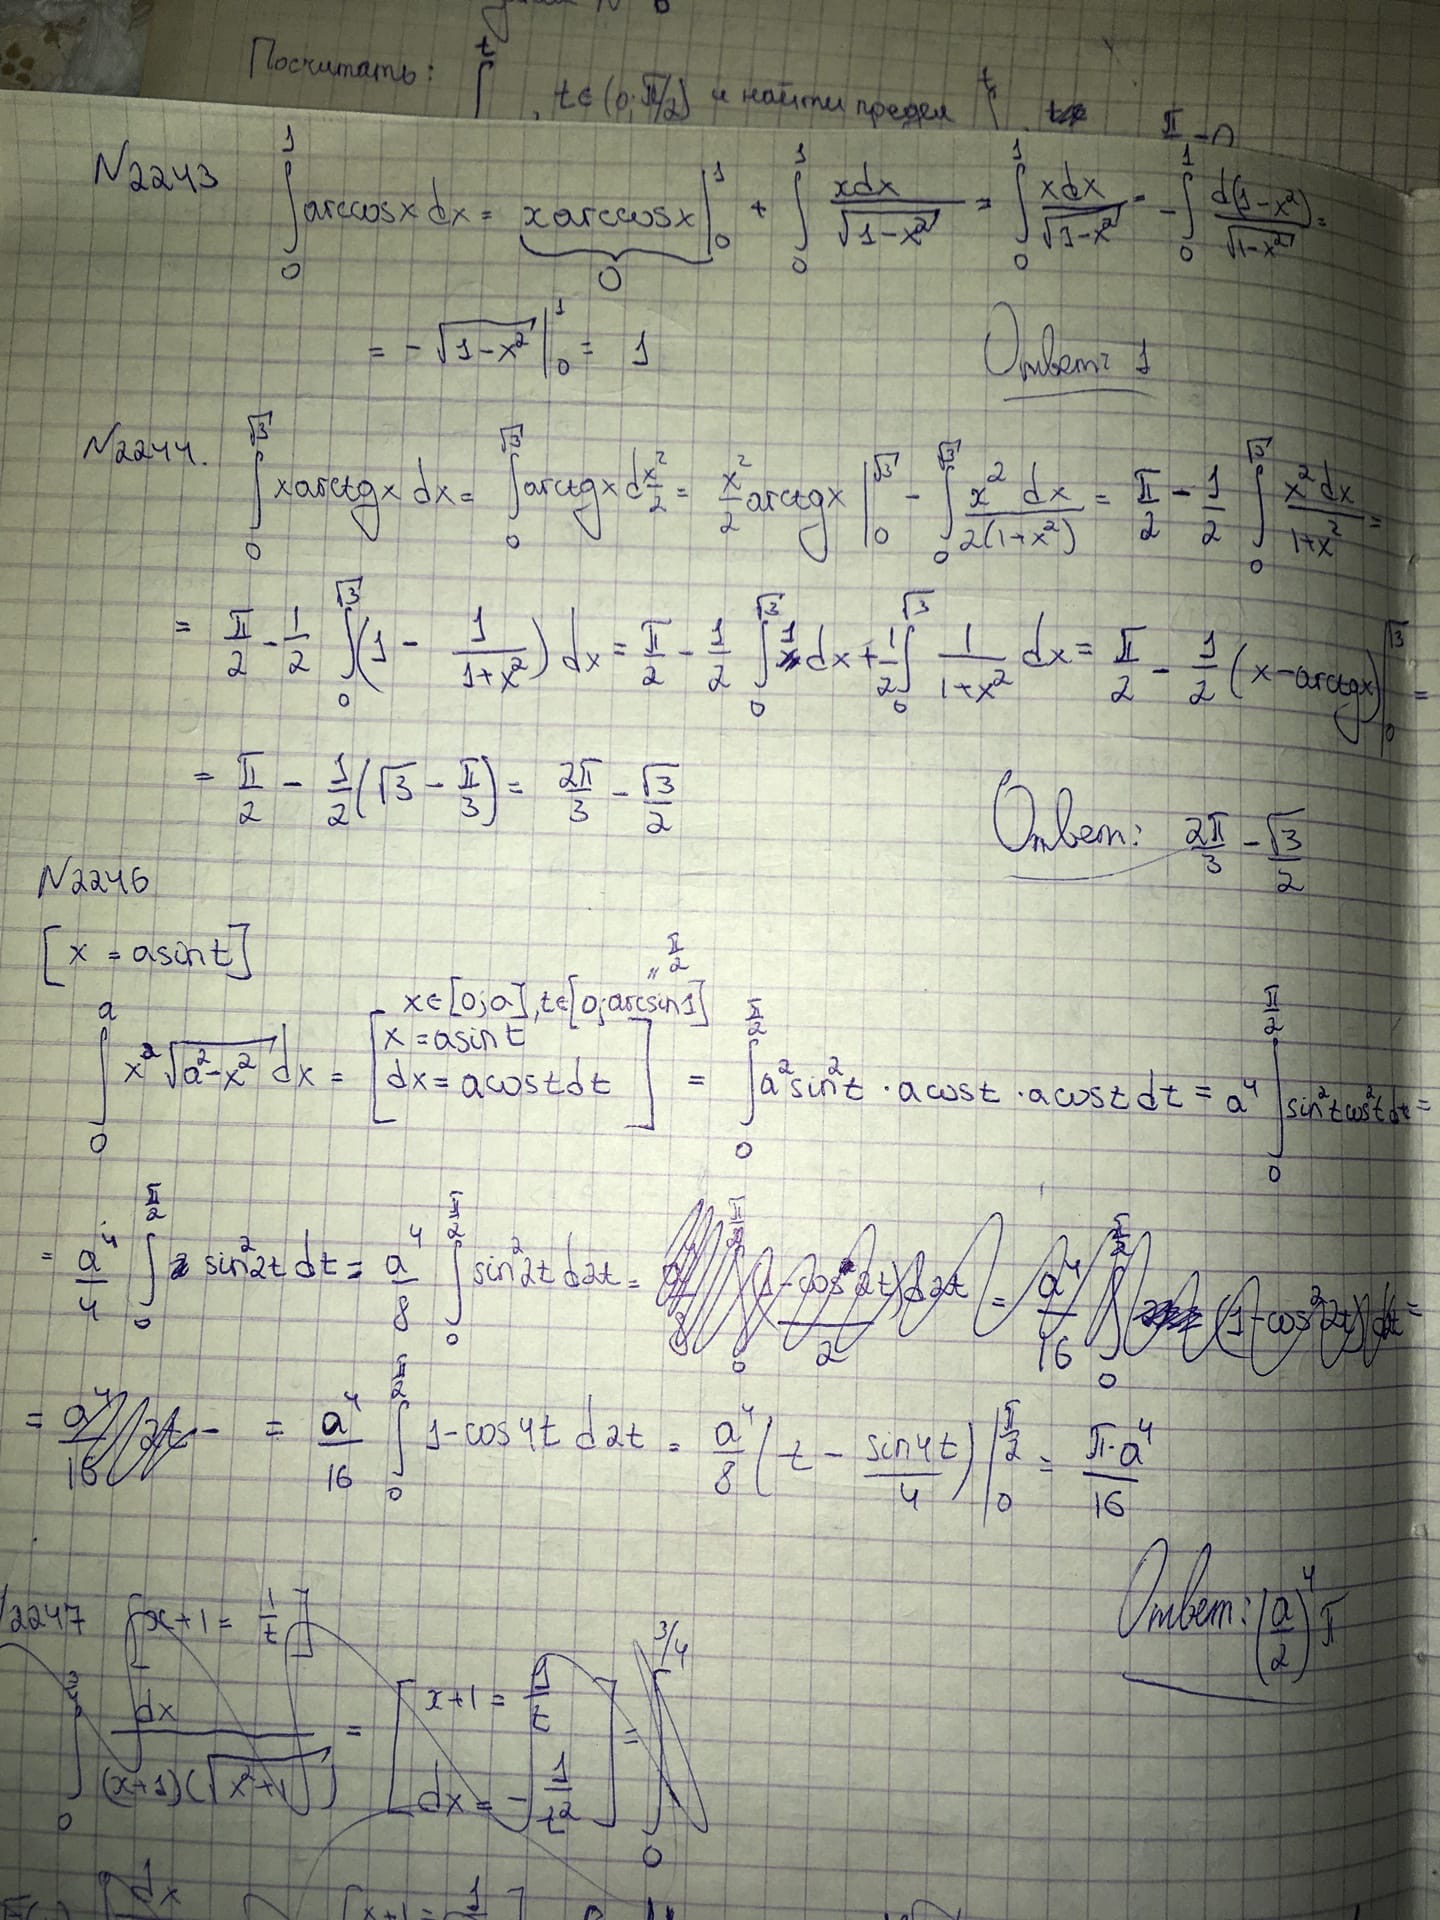 Посчитать: ∫^t , t∈(0; π/2) и найти предел
N2243 ∫₀¹ arccosx dx = xarccosx|₀¹ + ∫₀¹ xdx/√(1-x²) = ∫₀¹ xdx/√(1-x²) = -∫₀¹ d(1-x²)/√(1-x²) =
0
= -√(1-x²)|₀¹ = 1 Ответ: 1
N2244. ∫₀^√3 xarctgx dx = ∫₀^√3 arctgx d x²/2 = x²/2 arctgx|₀^√3 - ∫₀^√3 x² dx/2(1+x²) = π/2 - 1/2 ∫₀^√3 x²dx/1+x² =
= π/2 - 1/2 ∫₀^√3 (1 - 1/1+x²) dx = π/2 - 1/2 ∫₀^√3 1 dx + 1/2 ∫₀^√3 1/1+x² dx = π/2 - 1/2 (x - arctgx)|₀^√3 =
= π/2 - 1/2(√3 - π/3) = 2π/3 - √3/2 Ответ: 2π/3 - √3/2
N2246
[x = asint]
∫₀^a x²√(a²-x²) dx = [x∈[0;a], t∈[0;arcsin1] " π/2 x = asint dx = acostdt] = ∫₀^π/2 a²sin²t · acost · acostdt = a⁴ ∫₀^π/2 sin²tcos²tdt =
= a⁴/4 ∫₀^π/2 sin²2tdt = a⁴/8 ∫₀^π/2 sin²2td2t =
= a⁴/16 ∫₀^π/2 1-cos4t d2t = a⁴/8 (t - sin4t/4)|₀^π/2 = π·a⁴/16
Ответ: (a/2)⁴π
N2247 [x+1 = 1/t]
∫₀ dx/(x+1)(√(x²+1)) = [x+1 = 1/t dx = -1/t²] = ∫₀^3/4